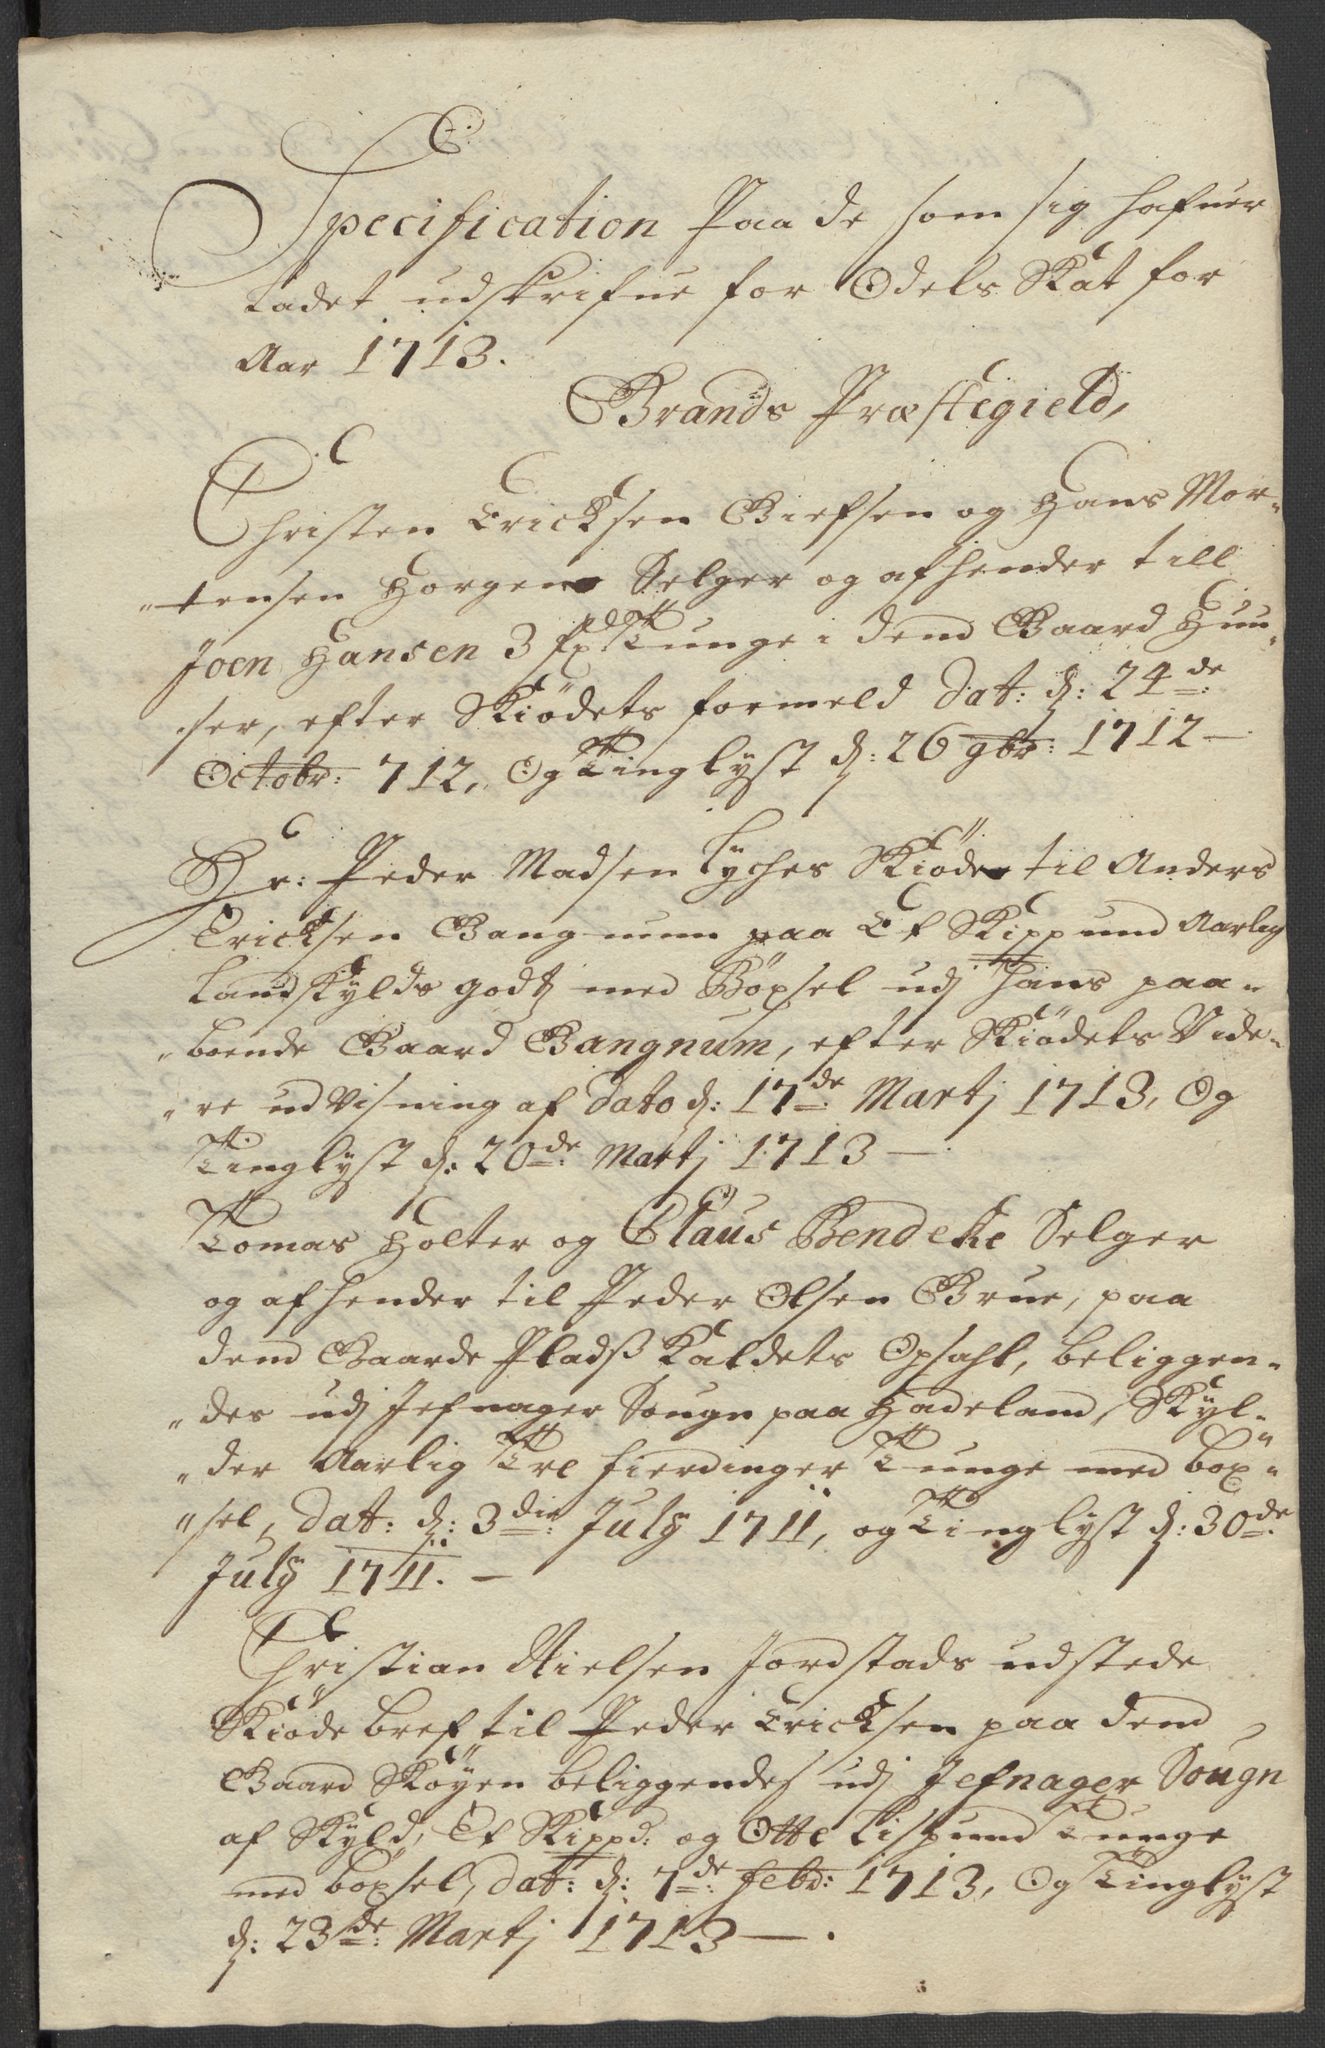 Specification Paa de som sig hafuer
Ladet udskrifue for Odels Skat for
Aar 1713.
Brands Præstegield,
Christen Ericksen Giefsen og Hans Mor-
"tensen Horgen Selger og afhender till
Joen Hansen 3 fr Tunge i dend Gaard Huu-
ser, efter Skiödets formeld dat: d: 24de
Octobr: 712, Og Tinglyst d: 26 9br: 1712 —
Hr: Peder Madsen Lyches Skiöder til Anders
Ericksen Gangnum paa Et Skippund Aarlig
Landskylds godtz med Böxsel udj hans paa-
"boende Gaard Gangnum, efter Skiödets Vide-
"re udvisning af dato d: 17de Martj 1713, Og
Tinglyst d: 20de Martj 1713 —
Tomas Holter og Claus Bendeke Selger
og afhender til Peder Olsen Brue, paa
dend Gaarde Pladß Kaldets Opsahl, beliggen-
"des udj Jefnager Sougn paa Hadeland, Skyl-
"der Aarlig Tre fierdinger Tunge med böx-
"sel, dat: d: 3die July 1711, og Tinglyst d: 30de
July 1711. —
Christian Nielsen Jordstads udstede
Skiöde bref til Peder Ericksen paa dend
Gaard Sköyen beliggendes udj Jefnager Sougn
af Skyld, Et Skippd: og Otte Lispund Tunge
med böxsel, dat: d: 7de febr: 1713, Og Tinglyst
d: 23de Martj 1713 — .